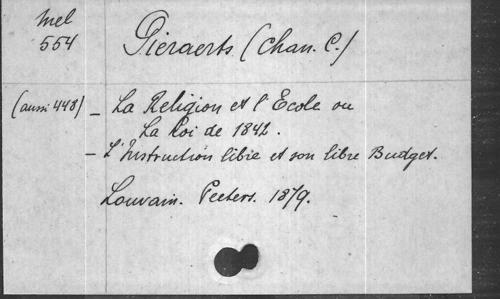 Mel
554
Pieraerts (Chan. C.)
(aussi 448) – La Religion et l'Ecole ou
La Loi de 1842.
– L'Instruction libre et son libre Budget.
Louvain. Peeters. 1879.